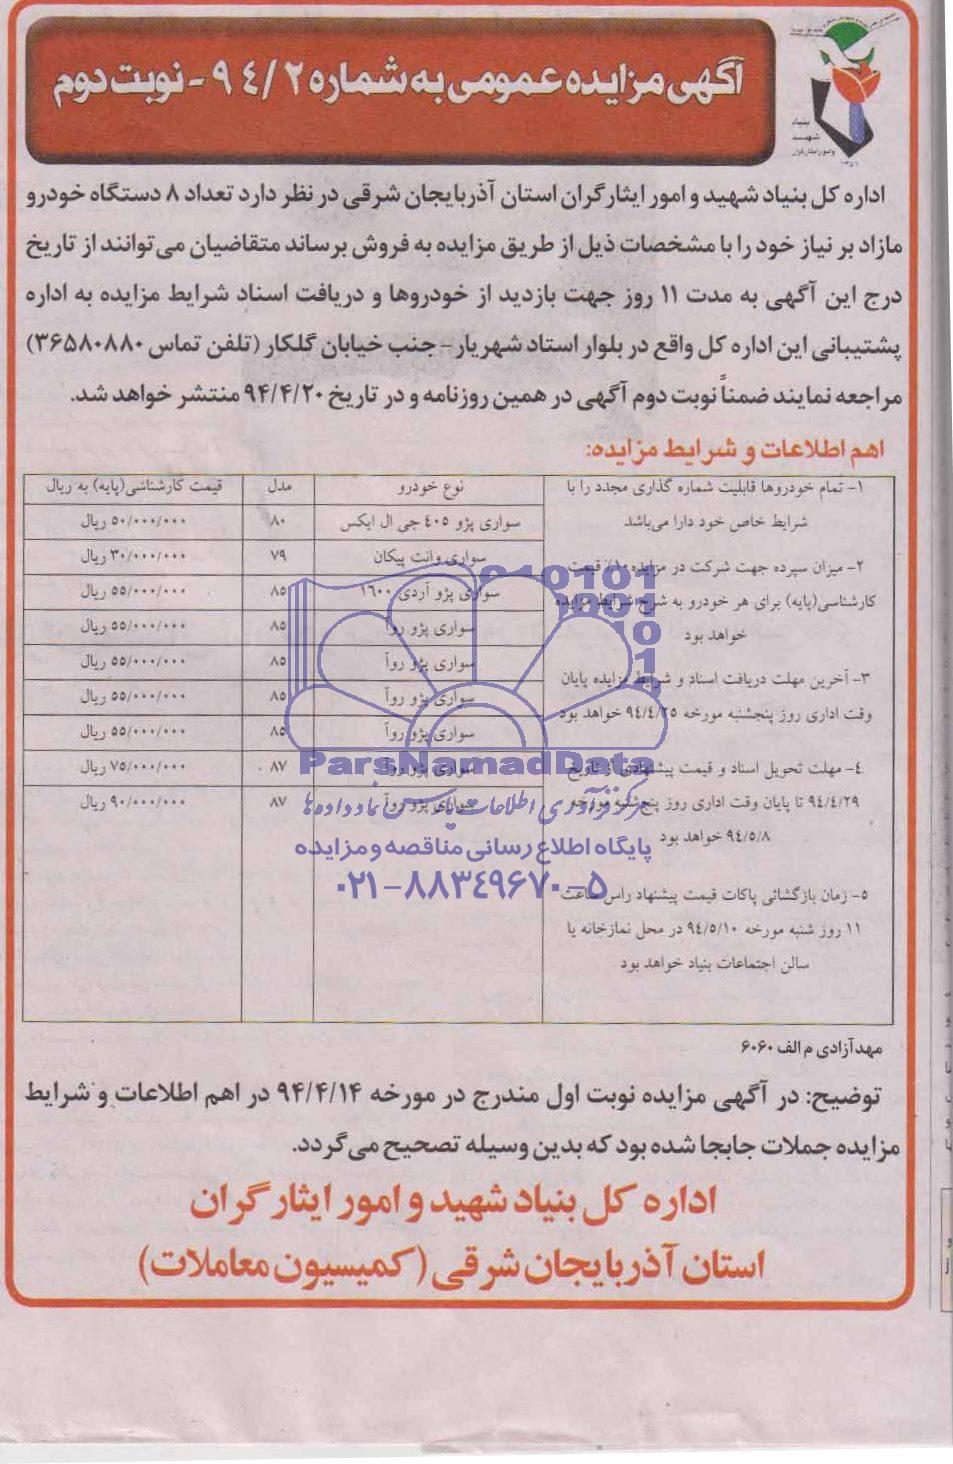 آگهی مزایده عمومی به شماره ۹۴/۲ - نوبت دوم
بنیاد
شهید
وامور ایثارگران
اداره کل بنیاد شهید و امور ایثارگران استان آذربایجان شرقی در نظر دارد تعداد ۸ دستگاه خودرو
مازاد بر نیاز خود را با مشخصات ذیل از طریق مزایده به فروش برساند متقاضیان می‌توانند از تاریخ
درج این آگهی به مدت ۱۱ روز جهت بازدید از خودروها و دریافت اسناد شرایط مزایده به اداره
پشتیبانی این اداره کل واقع در بلوار استاد شهریار- جنب خیابان گلکار (تلفن تماس ۳۶۵۸۰۸۸۰)
مراجعه نمایند ضمناً نوبت دوم آگهی در همین روزنامه و در تاریخ ۹۴/۴/۲۰ منتشر خواهد شد.
اهم اطلاعات و شرایط مزایده:
۱- تمام خودروها قابلیت شماره گذاری مجدد را با
شرایط خاص خود دارا می‌باشد
۲- میزان سپرده جهت شرکت در مزایده ۱۰٪ قیمت
کارشناسی(پایه) برای هر خودرو به شرح شرایط مزایده
خواهد بود
۳- آخرین مهلت دریافت اسناد و شرایط مزایده پایان
وقت اداری روز پنجشنبه مورخه ۹۴/۴/۲۵ خواهد بود
۴- مهلت تحویل اسناد و قیمت پیشنهادی از تاریخ
۹۴/۴/۲۹ تا پایان وقت اداری روز پنج‌شنبه مورخه
۹۴/۵/۸ خواهد بود
۵- زمان بازگشائی پاکات قیمت پیشنهاد راس ساعت
۱۱ روز شنبه مورخه ۹۴/۵/۱۰ در محل نمازخانه یا
سالن اجتماعات بنیاد خواهد بود
نوع خودرو مدل قیمت کارشناسی(پایه) به ریال
سواری پژو ۴۰۵ جی ال ایکس ۸۰ ۵۰/۰۰۰/۰۰۰ ریال
سواری وانت پیکان ۷۹ ۳۰/۰۰۰/۰۰۰ ریال
سواری پژو آردی ۱۶۰۰ ۸۵ ۵۵/۰۰۰/۰۰۰ ریال
سواری پژو روآ ۸۵ ۵۵/۰۰۰/۰۰۰ ریال
سواری پژو روآ ۸۵ ۵۵/۰۰۰/۰۰۰ ریال
سواری پژو روآ ۸۵ ۵۵/۰۰۰/۰۰۰ ریال
سواری پژو روآ ۸۵ ۵۵/۰۰۰/۰۰۰ ریال
سواری پژو روآ ۸۷ ۷۵/۰۰۰/۰۰۰ ریال
سواری پژو روآ ۸۷ ۹۰/۰۰۰/۰۰۰ ریال
010101
1001
10
1
ParsNamadData
مرکز فرآوری اطلاعات پارس نماد داده‌ها
پایگاه اطلاع رسانی مناقصه و مزایده
۰۲۱-۸۸۳۴۹۶۷۰-۵
مهد آزادی م الف ۶۰۶۰
توضیح: در آگهی مزایده نوبت اول مندرج در مورخه ۹۴/۴/۱۴ در اهم اطلاعات و شرایط
مزایده جملات جابجا شده بود که بدین وسیله تصحیح می‌گردد.
اداره کل بنیاد شهید و امور ایثارگران
استان آذربایجان شرقی (کمیسیون معاملات)